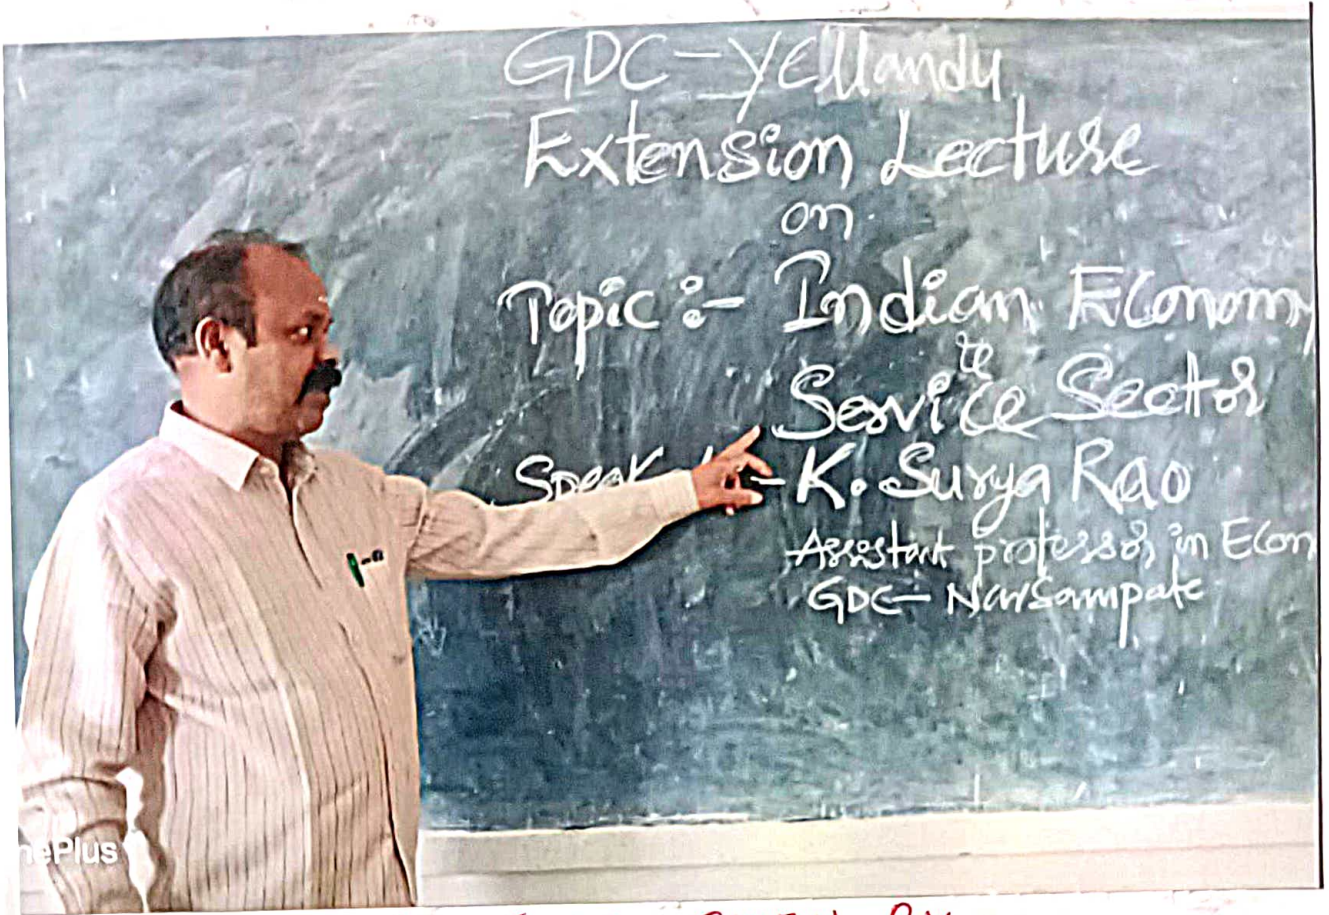 GDC - Yellandu
Extension Lecture
on
Topic :- Indian Economy
te
Service Sector
Speak - K. Surya Rao
Assestant professor in Econ
GDC - Narsampate
nePlus